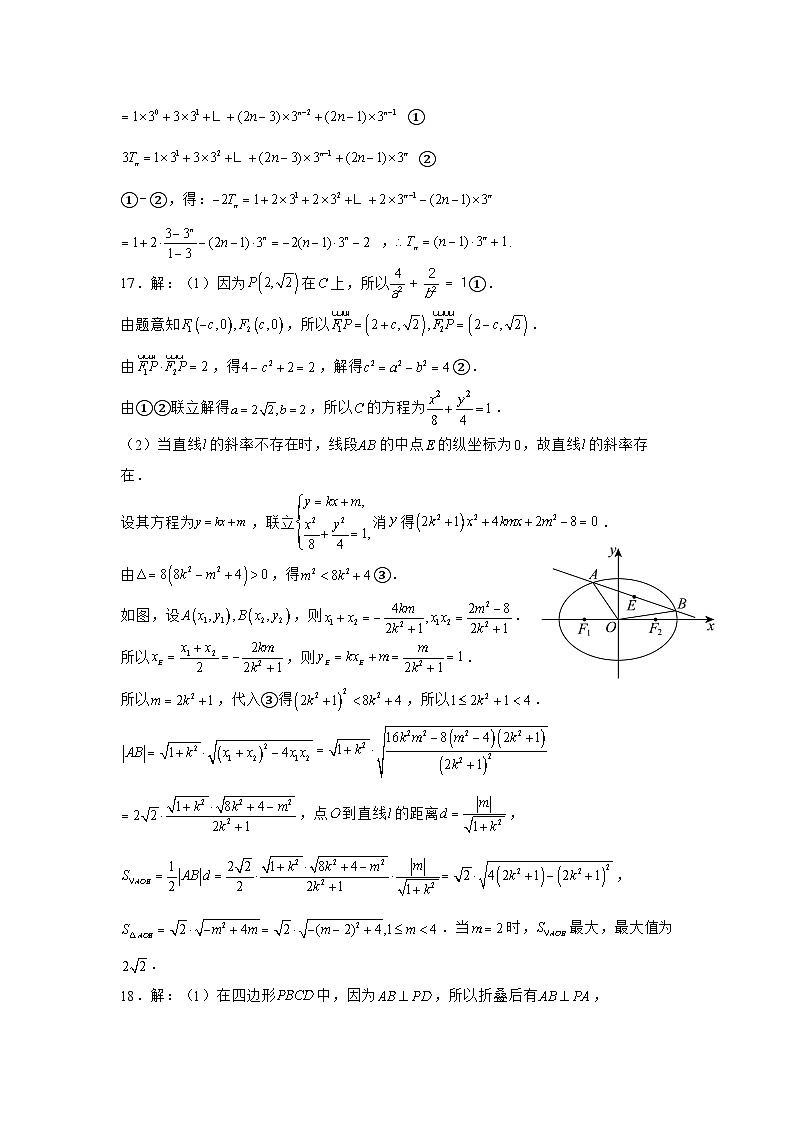 =1×3^0+3×3^1+L+(2n-3)×3^{n-2}+(2n-1)×3^{n-1} ①
3T_n=1×3^1+3×3^2+L+(2n-3)×3^{n-1}+(2n-1)×3^n ②
①-②,得:-2T_n=1+2×3^1+2×3^2+L+2×3^{n-1}-(2n-1)×3^n
=1+2·\frac{3-3^n}{1-3}-(2n-1)·3^n=-2(n-1)·3^n-2 ,∴T_n=(n-1)·3^n+1.
17.解:(1)因为P(2,√2)在C上,所以\frac{4}{a^2}+\frac{2}{b^2}=1①.
由题意知F_1(-c,0),F_2(c,0),所以\overrightarrow{F_1P}=(2+c,√2),\overrightarrow{F_2P}=(2-c,√2).
由\overrightarrow{F_1P}·\overrightarrow{F_2P}=2,得4-c^2+2=2,解得c^2=a^2-b^2=4②.
由①②联立解得a=2√2,b=2,所以C的方程为\frac{x^2}{8}+\frac{y^2}{4}=1.
(2)当直线l的斜率不存在时,线段AB的中点E的纵坐标为0,故直线l的斜率存
在.
设其方程为y=kx+m,联立\begin{cases}y=kx+m,\\\frac{x^2}{8}+\frac{y^2}{4}=1,\end{cases}消y得(2k^2+1)x^2+4kmx+2m^2-8=0.
由△=8(8k^2-m^2+4)>0,得m^2<8k^2+4③.
如图,设A(x_1,y_1),B(x_2,y_2),则x_1+x_2=-\frac{4km}{2k^2+1},x_1x_2=\frac{2m^2-8}{2k^2+1}.
所以x_E=\frac{x_1+x_2}{2}=-\frac{2km}{2k^2+1},则y_E=kx_E+m=\frac{m}{2k^2+1}=1.
所以m=2k^2+1,代入③得(2k^2+1)^2<8k^2+4,所以1≤2k^2+1<4.
|AB|=\sqrt{1+k^2}·\sqrt{(x_1+x_2)^2-4x_1x_2}=\sqrt{1+k^2}·\sqrt{\frac{16k^2m^2-8(m^2-4)(2k^2+1)}{(2k^2+1)^2}}
=2√2·\frac{\sqrt{1+k^2}·\sqrt{8k^2+4-m^2}}{2k^2+1},点O到直线l的距离d=\frac{|m|}{\sqrt{1+k^2}},
S_{VAOB}=\frac{1}{2}|AB|d=\frac{2√2}{2}·\frac{\sqrt{1+k^2}·\sqrt{8k^2+4-m^2}}{2k^2+1}·\frac{|m|}{\sqrt{1+k^2}}=√2·\sqrt{4(2k^2+1)-(2k^2+1)^2},
S_{△AOB}=√2·\sqrt{-m^2+4m}=√2·\sqrt{-(m-2)^2+4},1≤m<4.当m=2时,S_{VAOB}最大,最大值为
2√2.
18.解:(1)在四边形PBCD中,因为AB⊥PD,所以折叠后有AB⊥PA,
y
A
E
B
F_1
O
F_2
x